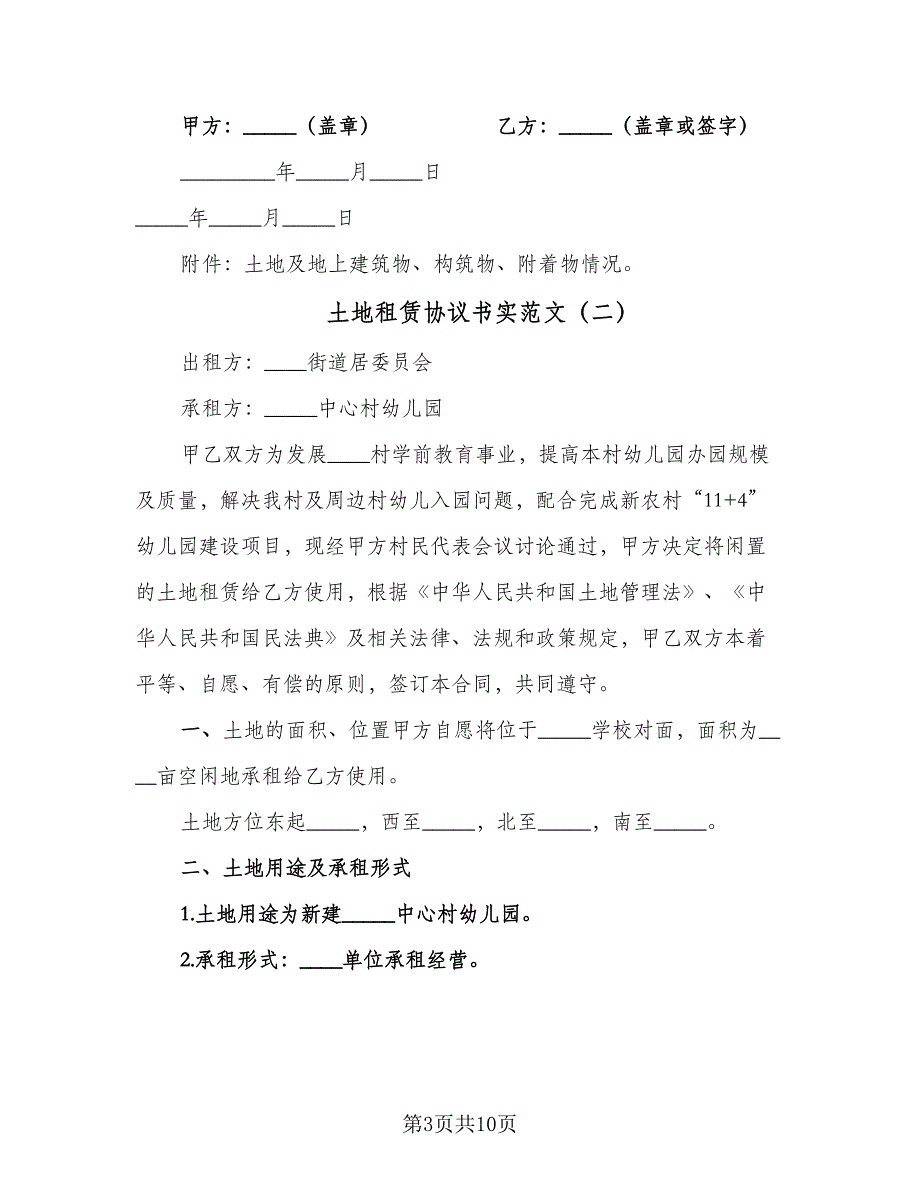 甲方：_____（盖章） 乙方：_____（盖章或签字）
_________年_____月_____日
_____年_____月_____日
附件：土地及地上建筑物、构筑物、附着物情况。
土地租赁协议书实范文（二）
出租方：____街道居委员会
承租方：_____中心村幼儿园
甲乙双方为发展____村学前教育事业，提高本村幼儿园办园规模
及质量，解决我村及周边村幼儿入园问题，配合完成新农村“11+4”
幼儿园建设项目，现经甲方村民代表会议讨论通过，甲方决定将闲置
的土地租赁给乙方使用，根据《中华人民共和国土地管理法》、《中
华人民共和国民法典》及相关法律、法规和政策规定，甲乙双方本着
平等、自愿、有偿的原则，签订本合同，共同遵守。
一、土地的面积、位置甲方自愿将位于_____学校对面，面积为__
__亩空闲地承租给乙方使用。
土地方位东起_____，西至_____，北至_____，南至_____。
二、土地用途及承租形式
1.土地用途为新建_____中心村幼儿园。
2.承租形式：____单位承租经营。
第3页共10页